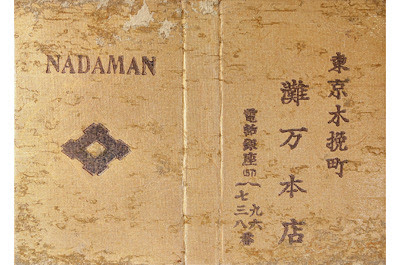 NADAMAN
東京木挽町
灘万本店
電話銀座(57)一八九六
七三八番